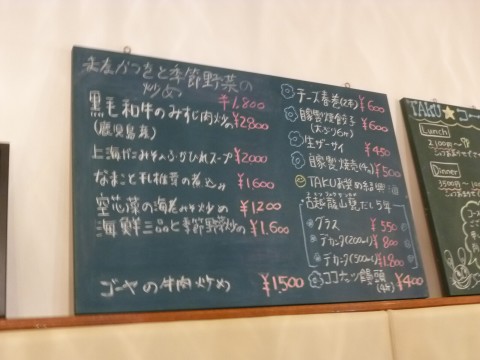 まながつおと季節野菜の
炒め ¥1,800
黒毛和牛のみすじ肉炒め ¥2,800
(鹿児島産)
上海がにみそ入りふかひれスープ ¥2000
なまこと干し椎茸の煮込み ¥1600
空芯菜の海老みそ炒め ¥1200
海鮮三品と季節野菜炒め ¥1,600
ゴーヤの牛肉炒め ¥1,500
チーズ春巻(2本) ¥600
自家製焼餃子 ¥600
(大ぶり6ヶ)
生ザーサイ ¥450
自家製焼売(4ヶ) ¥500
TAKUお奨め紹興酒
古越龍山 甕だし5年
グラス ¥550
デカンタ(200ml) ¥800
デカンタ(500ml) ¥1,800
ココナッツ饅頭 ¥400
TAKU★コー
Lunch
Dinner